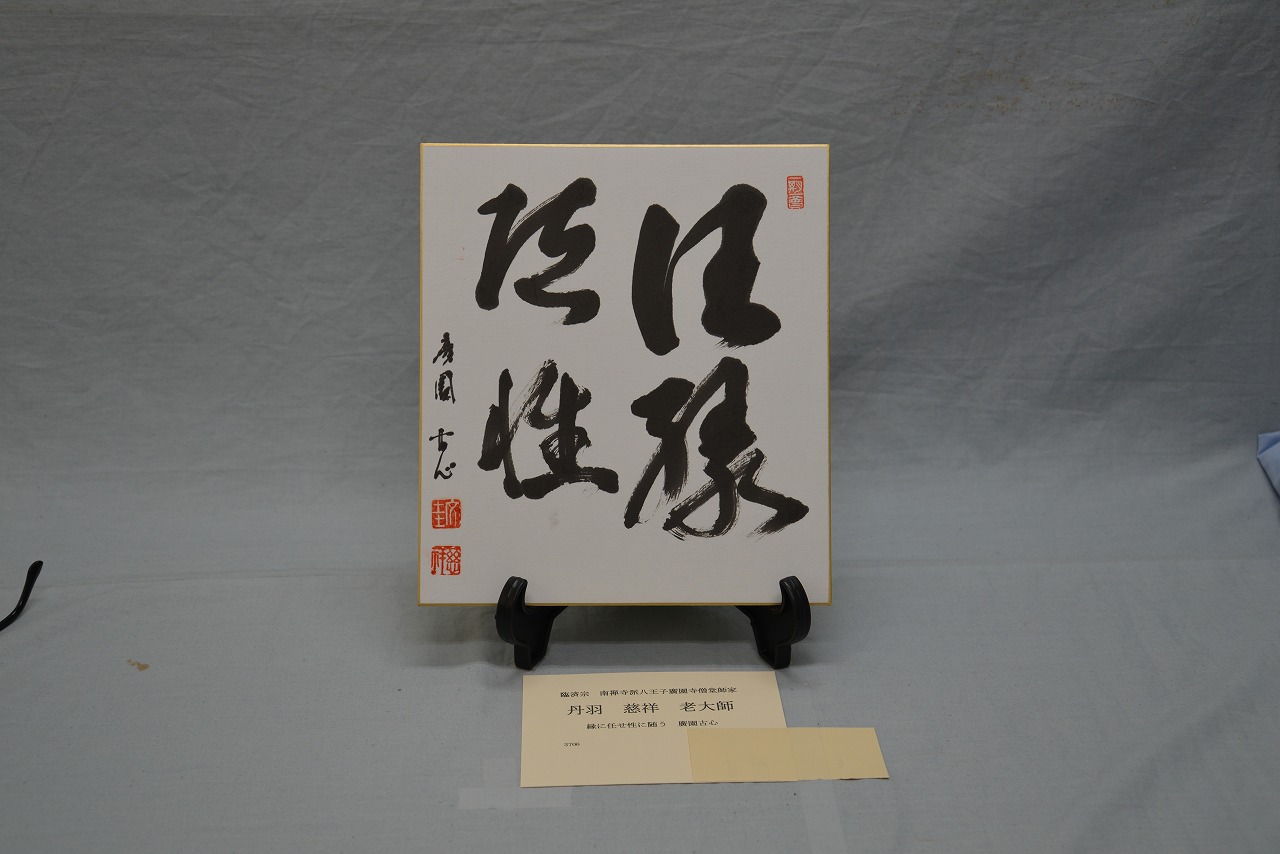 任縁
随性
廣園 古心
慈祥
臨済宗 南禅寺派八王子廣園寺僧堂師家
丹羽 慈祥 老大師
縁に任せ性に随う 廣園古心
3706